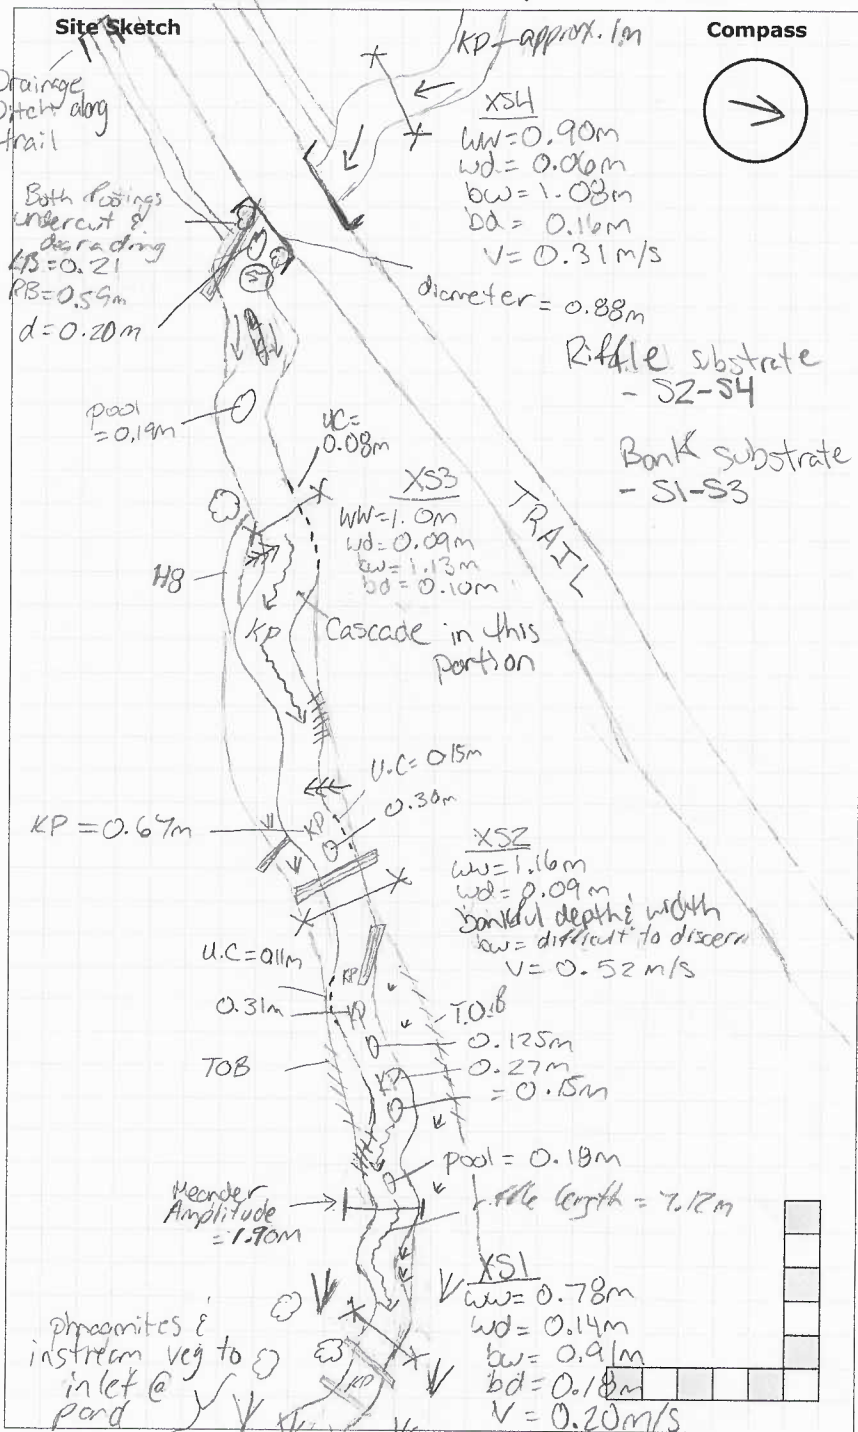 Site Sketch
Compass
KP - approx. 1m
Drainage
Ditch along
trail
XS4
ww=0.90m
wd = 0.06m
bw = 1.08m
bd = 0.16m
V = 0.31 m/s
Both footings
undercut &
degrading
LB = 0.21
RB = 0.59m
d = 0.20m
diameter = 0.88m
Riffle substrate
- S2-S4
Bank substrate
- S1-S3
pool
= 0.19m
UC =
0.08m
XS3
WW=1.0m
wd = 0.09m
bw = 1.13m
bd = 0.10m
TRAIL
H8
KP
Cascade in this
portion
U.C = 0.15m
0.30m
KP = 0.67m
KP
XS2
ww = 1.16m
wd = 0.09m
bankful depth & width
bw = difficult to discern
V = 0.52 m/s
U.C = 0.11m
KP
0.31m
KP
T.O.B
TOB
0.125m
KP
0.27m
= 0.15m
pool = 0.18m
Meander
Amplitude
= 1.90m
riffle length = 7.12m
XS1
ww = 0.78m
wd = 0.14m
bw = 0.91m
bd = 0.18m
V = 0.20 m/s
phragmites &
instream veg to
inlet @
pond
KP